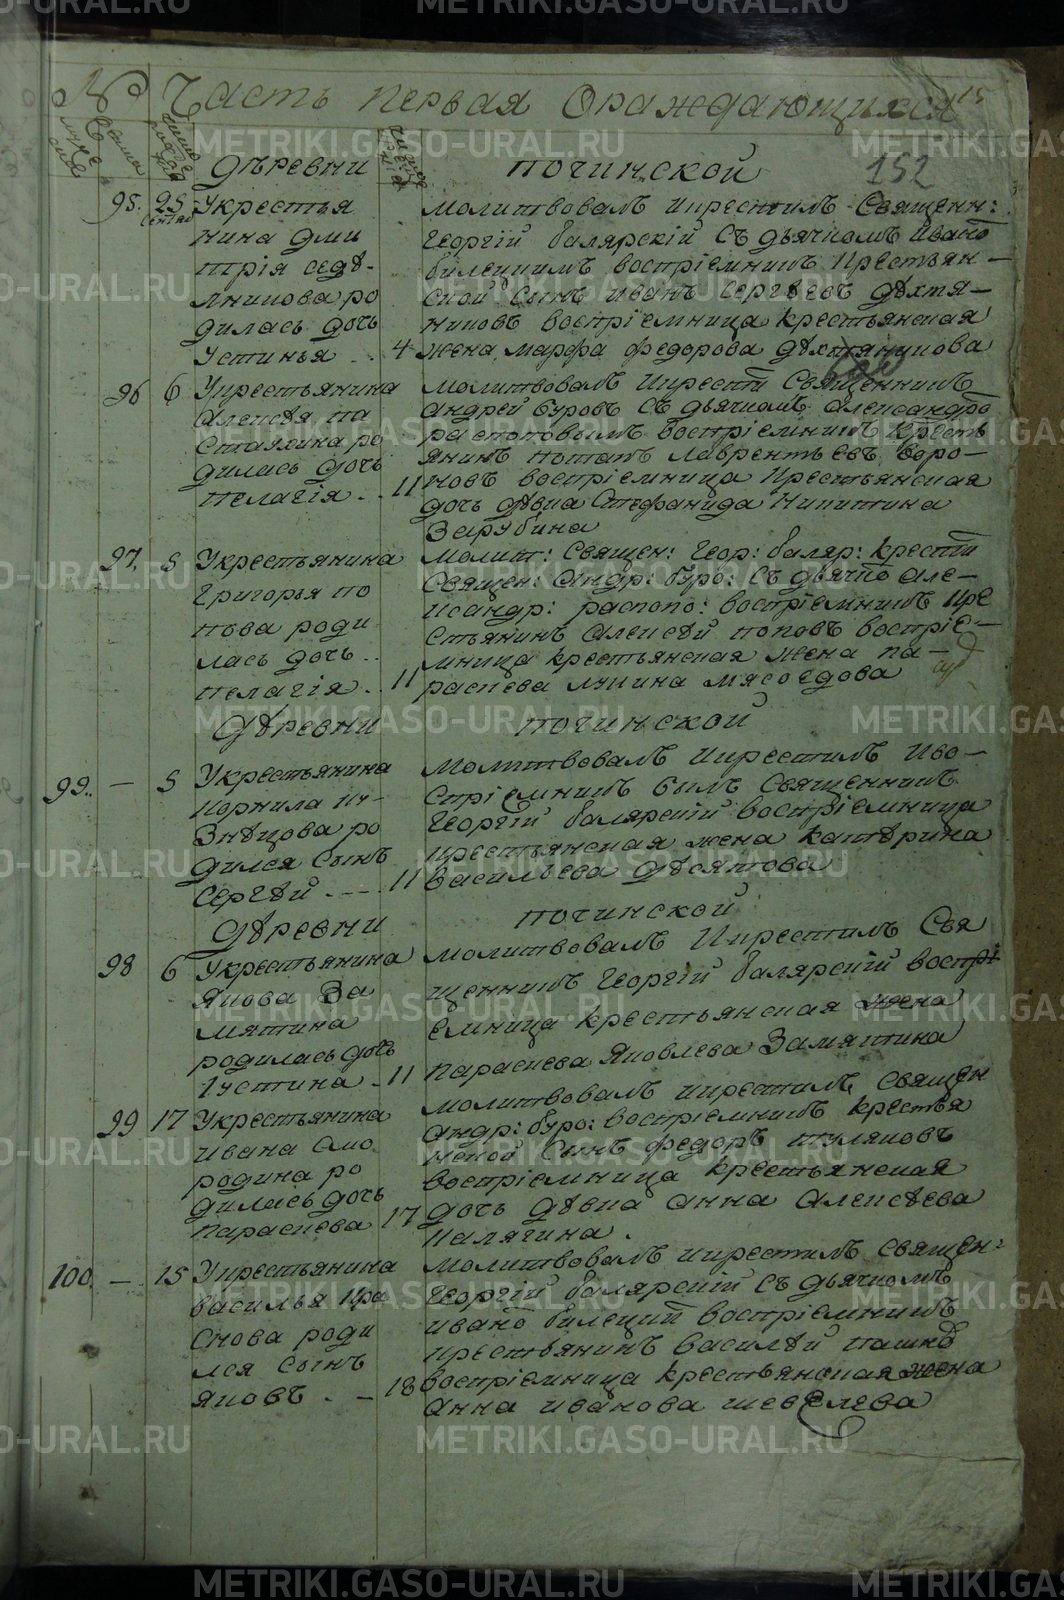 Часть первая ораждающихся
15
152
дѣревни починской
95. 25 У крестья
сентяб
нина дми
трія седѣ-
лникова ро
дилась дочь
Устинья 4
молитвовалъ икрестилъ Священн:
Георгій балярскій съ дьячкомъ ивано
билецкимъ воспріемникъ крестьян-
ской сынъ иванъ Сергѣевъ дѣхтя-
никовъ воспріемница крестьянская
жена марфа федорова дѣхтяникова
96 6 Укрестьянина
алексѣя па
стаухина ро
дилась дочь
пелагія 11
молитвовалъ икрести Священникъ
андрей буровъ съ дьячкомъ александро
распоповымъ воспріемникъ кресть
янинъ потапъ лаврентьевъ воро-
новъ воспріемница крестьянская
дочь дѣвка Стефанида Никитина
Зарубина
97. 5 Укрестьянина
григорья по
пова роди
лась дочь
пелагія 11
молит: Священ: Геор: баляр: крести
Священ: андр: буро: съ дьячко але-
ксандр: распопо: воспріемникъ кре
стьянинъ алексѣй поповъ воспріе-
мница крестьянская жена па-
раскева лукина мясоедова
дѣревни починской
99. — 5 Укрестьянина
корнила ку-
знѣцова ро
дился сынъ
Сергѣй 11
молитвовалъ икрестилъ иво-
спріемникъ былъ Священникъ
Георгій балярскій воспріемница
крестьянская жена катѣрина
васильева дѣсятова
дѣревни починской
98 6 Укрестьянина
якова За
мятина
родилась дочь
Іустина 11
молитвовалъ икрестилъ Свя
щенникъ Георгій балярскій воспрі
емница крестьянская жена
параскева яковлева Замятина
99 17 Укрестьянина
ивана смо
родина ро
дилась дочь
параскева 17
молитвовалъ икрестилъ священ
андр: буро: воспріемникъ крестья
нской сынъ федоръ туляковъ
воспріемница крестьянская
дочь дѣвка анна алексѣева
калягина.
100. — 15 Укрестьянина
василья кра
снова роди
лся сынъ
яковъ. 18
молитвовалъ икрестилъ священ:
Георгій балярскій съ дьячкомъ
ивано билецкий воспріемникъ
крестьянинъ василѣй пашко
воспріемница крестьянская жена
анна иванова шевелева
METRIKI.GASO-URAL.RU